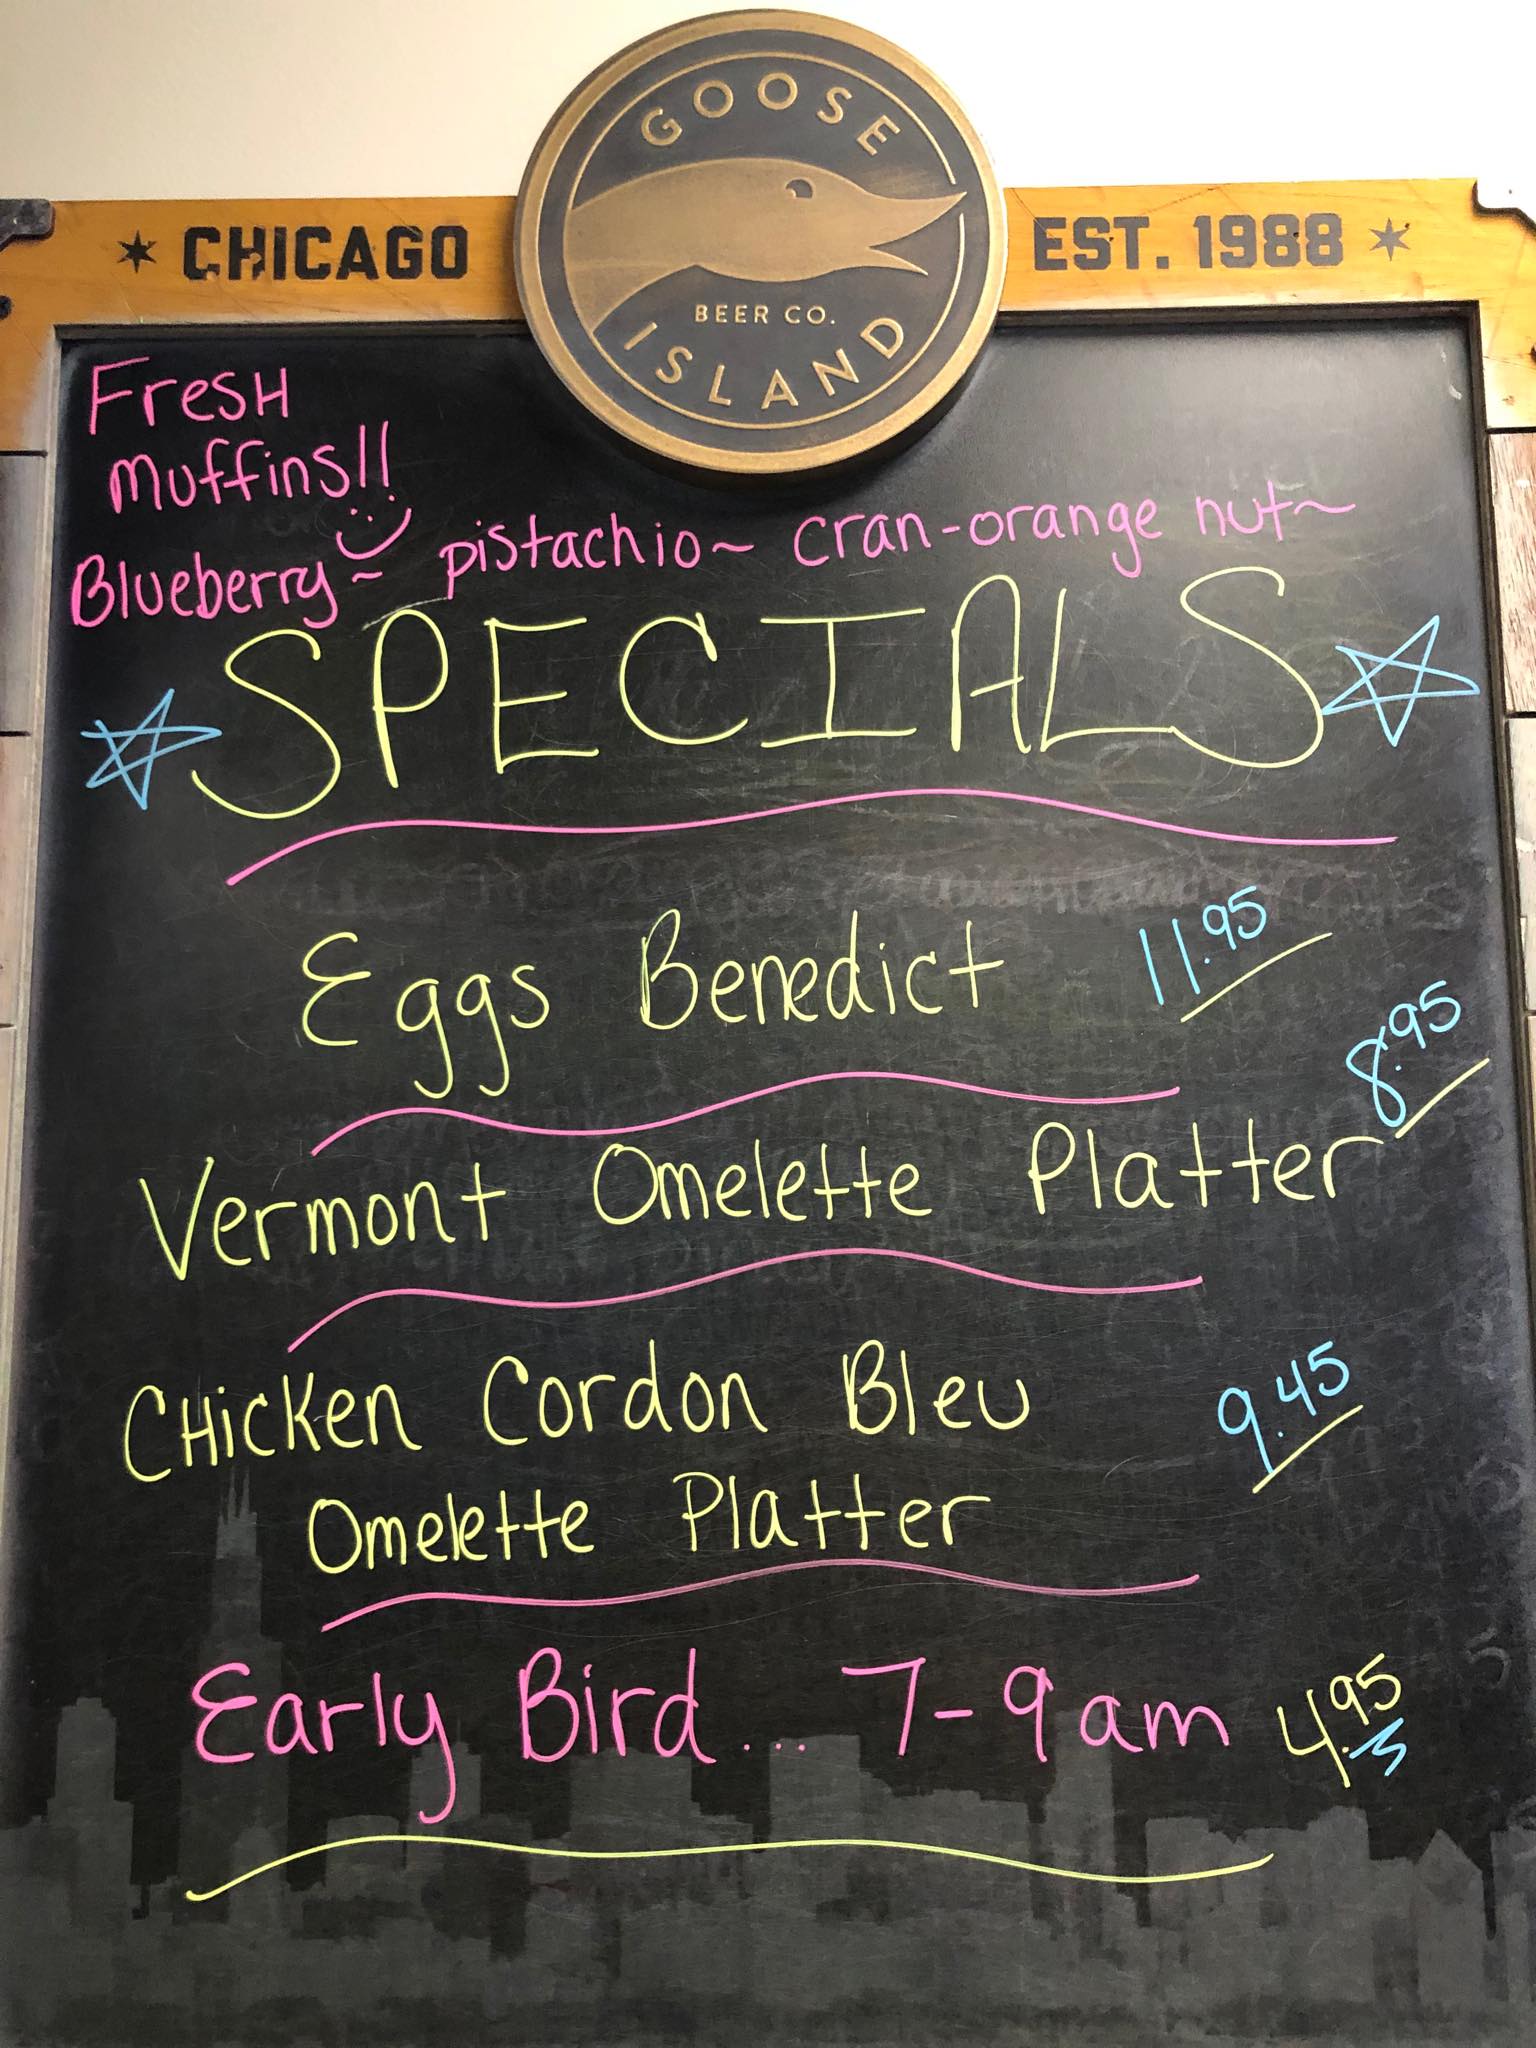 GOOSE
★ CHICAGO
EST. 1988 ★
BEER CO.
ISLAND
FresH
muffins!!
Blueberry~ pistachio~ cran-orange nut~
SPECIALS
Eggs Benedict 11.95
Vermont Omelette Platter 8.95
CHicKen Cordon Bleu 9.45
Omelette Platter
Early Bird... 7-9am 4.95